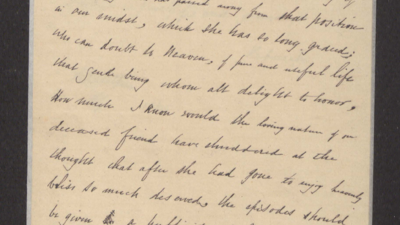 passed away from that position
in our midst, which she has so long graced;
who can doubt to Heaven, of pure and useful life
that gentle being whom all delight to honor,
How much I know would the loving nature of our
deceased friend have shuddered at the
thought that after she had gone to enjoy heavenly
bliss so much deserved, the episodes should
be given to a